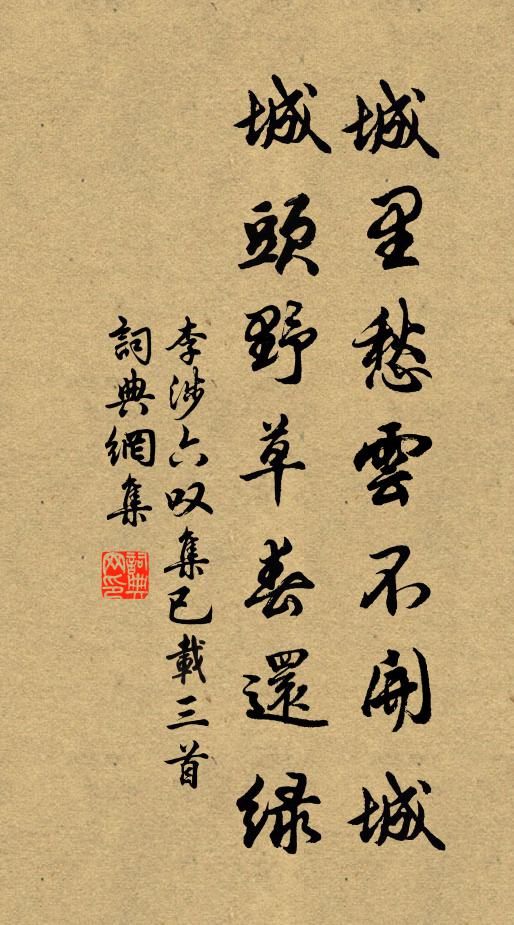 城里愁雲不開城
城頭野草春還緑
李涉六叹集已載三首
詞典網集
詞典網印